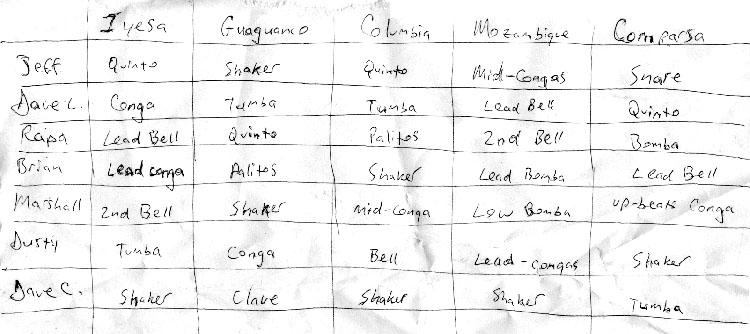 Iyesa Guaguanco Columbia Mozambique Comparsa
Jeff Quinto Shaker Quinto Mid-Congas Snare
Dave L. Conga Tumba Tumba Lead Bell Quinto
Rapa Lead Bell Quinto Palitos 2nd Bell Bomba
Brian Lead conga Palitos Shaker Lead Bomba Lead Bell
Marshall 2nd Bell Shaker Mid-Conga Low Bomba up-beats Conga
Dusty Tumba Conga Bell Lead-congas Shaker
Dave C. Shaker Clave Shaker Shaker Tumba